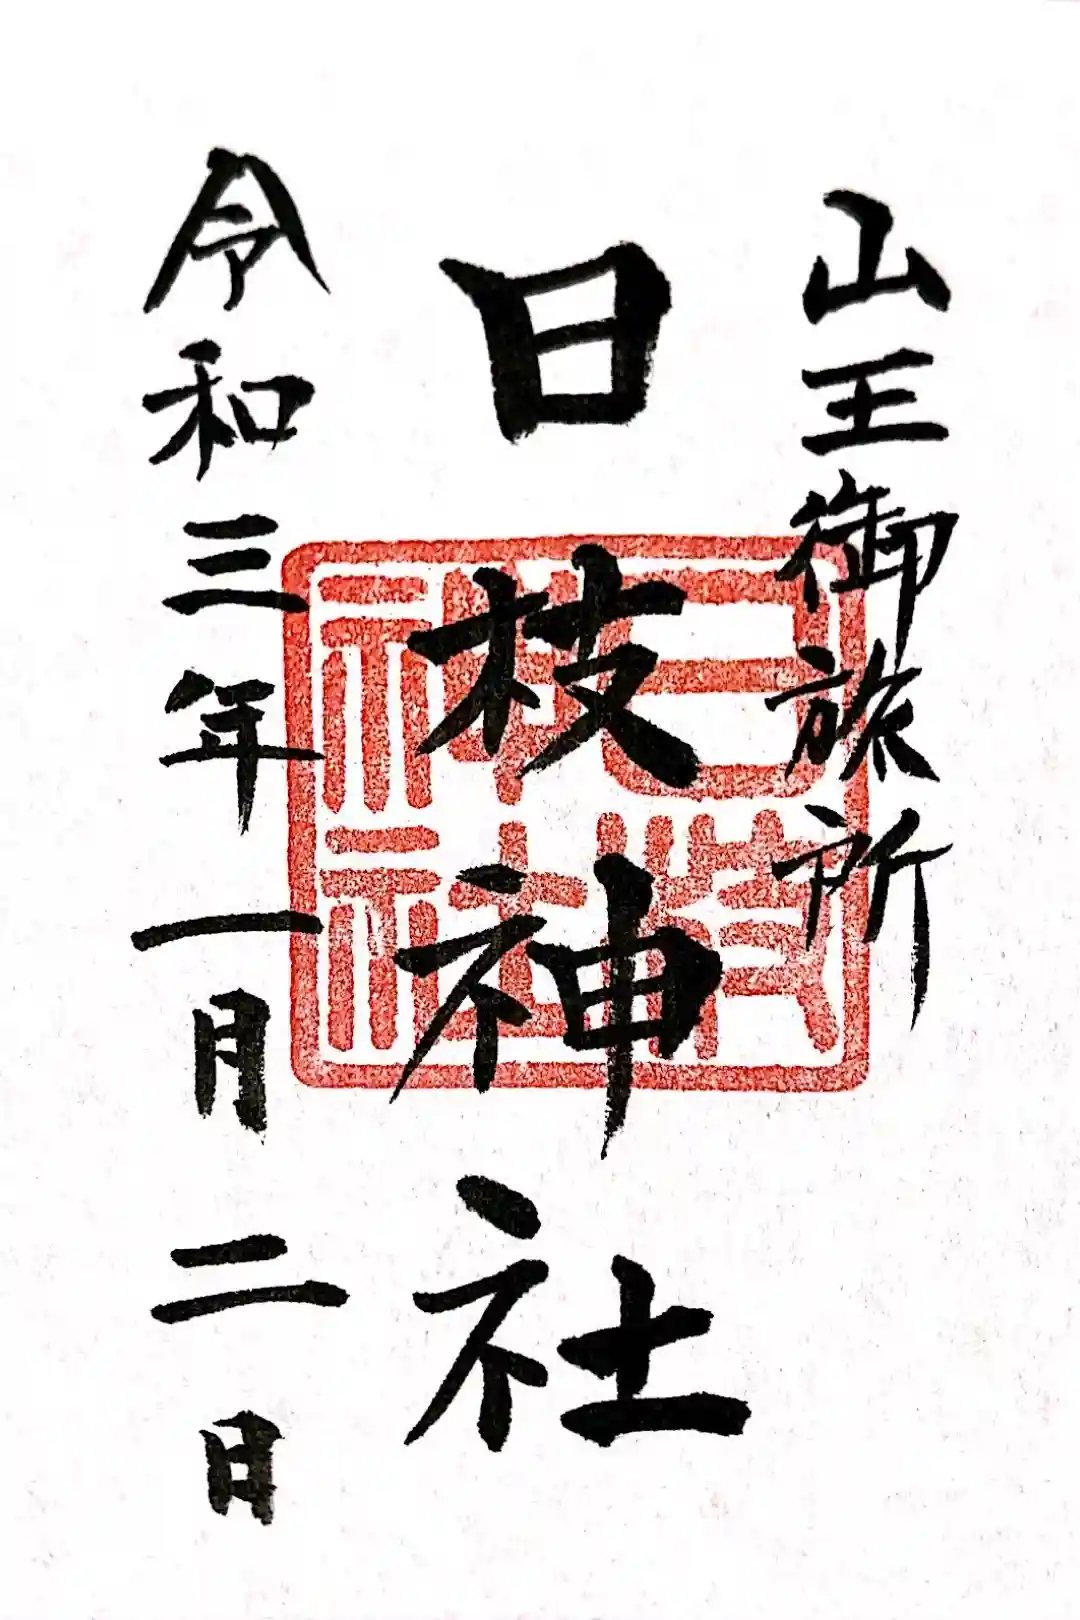 山王御旅所
日枝神社
日枝神社
令和三年一月二日